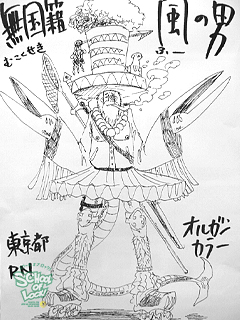 無国籍
むこくせき
風の男
ふー
東京都
RN
オルガン
カラー
School
of
Lock!